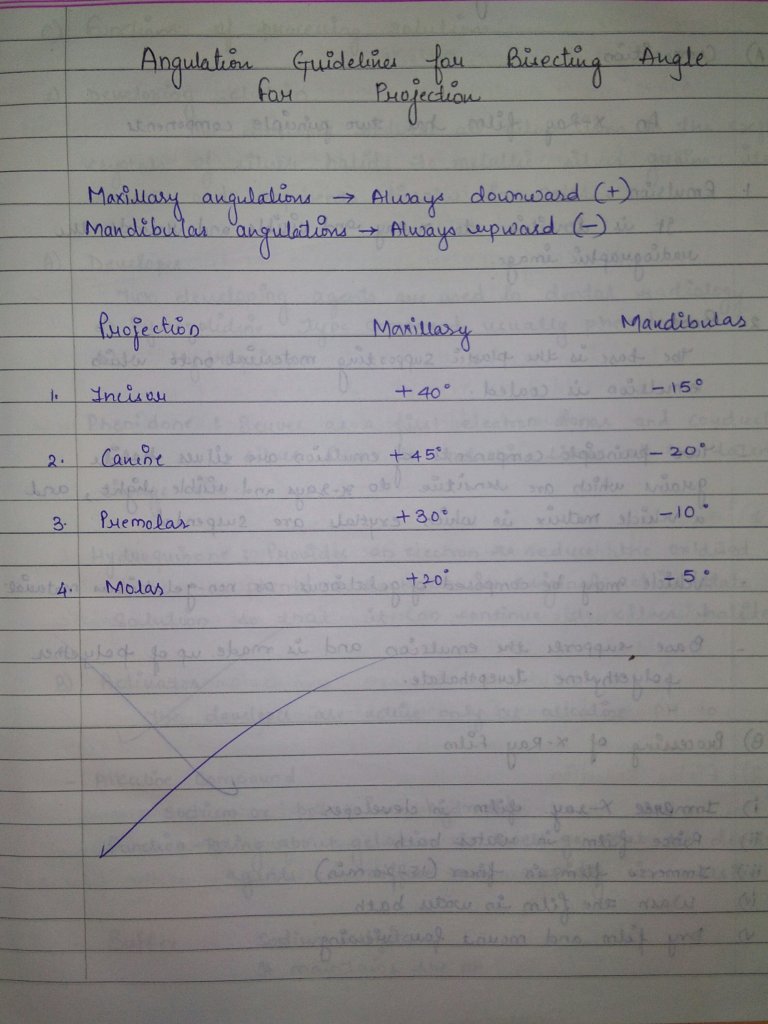 Angulation Guidelines for Bisecting Angle
for Projection
Maxillary angulations → Always downward (+)
Mandibular angulations → Always upward (-)
Projection Maxillary Mandibular
1. Incisor +40° -15°
2. Canine +45° -20°
3. Premolar +30° -10°
4. Molar +20° -5°